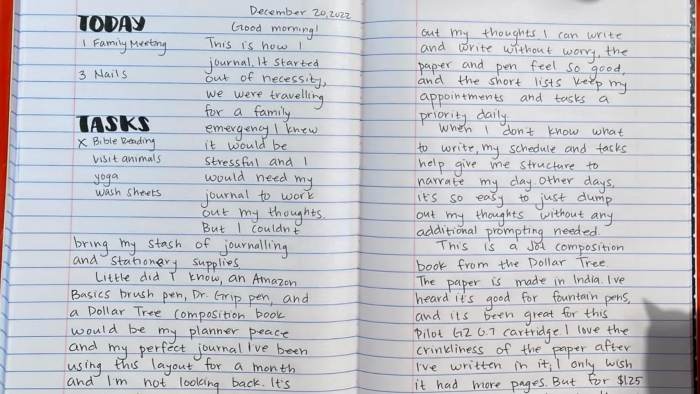 December 20, 2022
TODAY
1 Family Meeting
3 Nails
TASKS
x Bible Reading
visit animals
yoga
wash sheets
Good morning!
This is how I
journal. It started
out of necessity,
we were travelling
for a family
emergency I knew
it would be
stressful and I
would need my
journal to work
out my thoughts.
But I couldnt
bring my stash of journalling
and stationary supplies
Little did I know, an Amazon
Basics brush pen, Dr. Grip pen, and
a Dollar Tree composition book
would be my planner peace
and my perfect journal I've been
using this layout for a month
and I'm not looking back. It's
out my thoughts I can write
and write without worry, the
paper and pen feel so good,
and the short lists keep my
appointments and tasks a
priority daily.
When I don't know what
to write, my schedule and tasks
help give me structure to
narrate my day. Other days,
it's so easy to just dump
out my thoughts without any
additional prompting needed.
This is a Jot composition
book from the Dollar Tree.
The paper is made in India. I've
heard it's good for fountain pens,
and its been great for this
Pilot G2 0.7 cartridge. I love the
crinkliness of the paper after
I've written in it, I only wish
it had more pages. But for $1.25